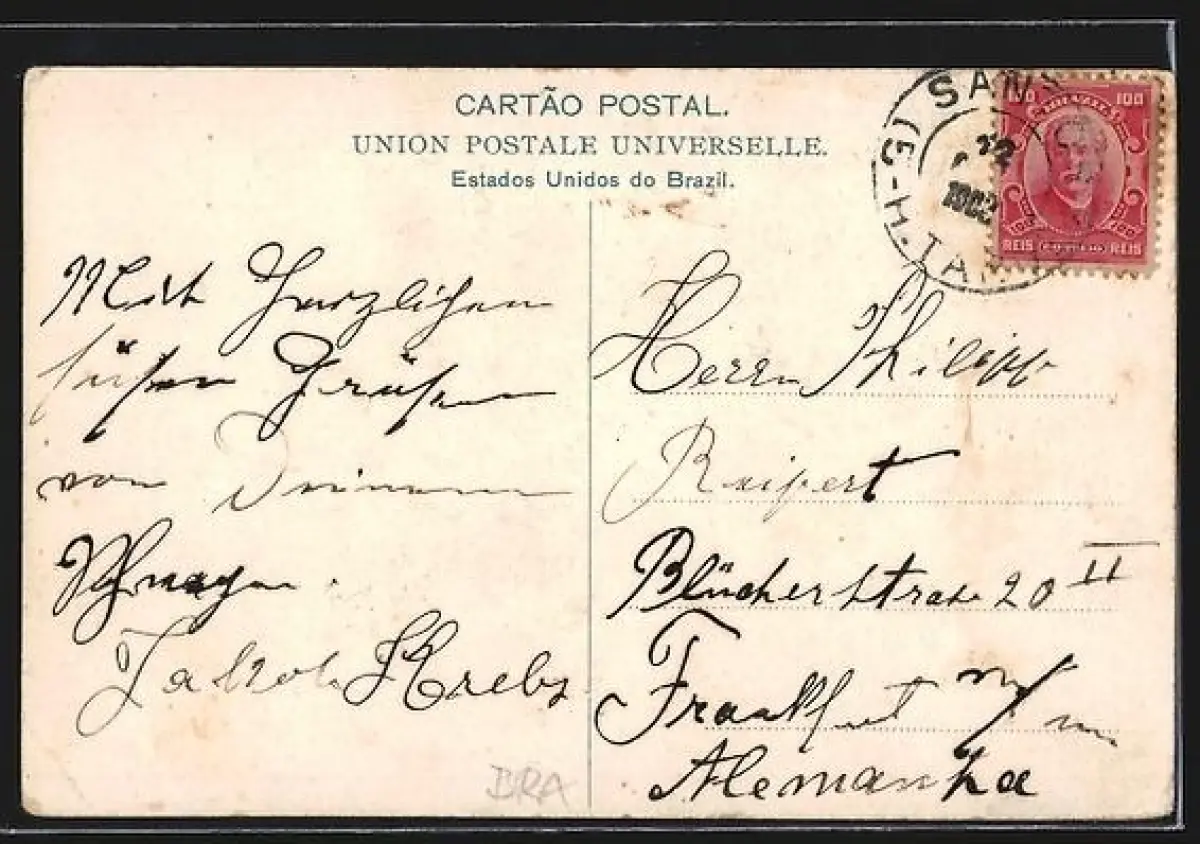 CARTÃO POSTAL.
UNION POSTALE UNIVERSELLE.
Estados Unidos do Brazil.
100 BRAZIL 100
REIS CORREIO REIS
Mit Herzlichen
süßen Grüßen
von Deinem
Schwager
Jakob Krebs
Herrn Philipp
Reipert
Blücherstrasse 20 II
Frankfurt a/m
Alemanha
BRA